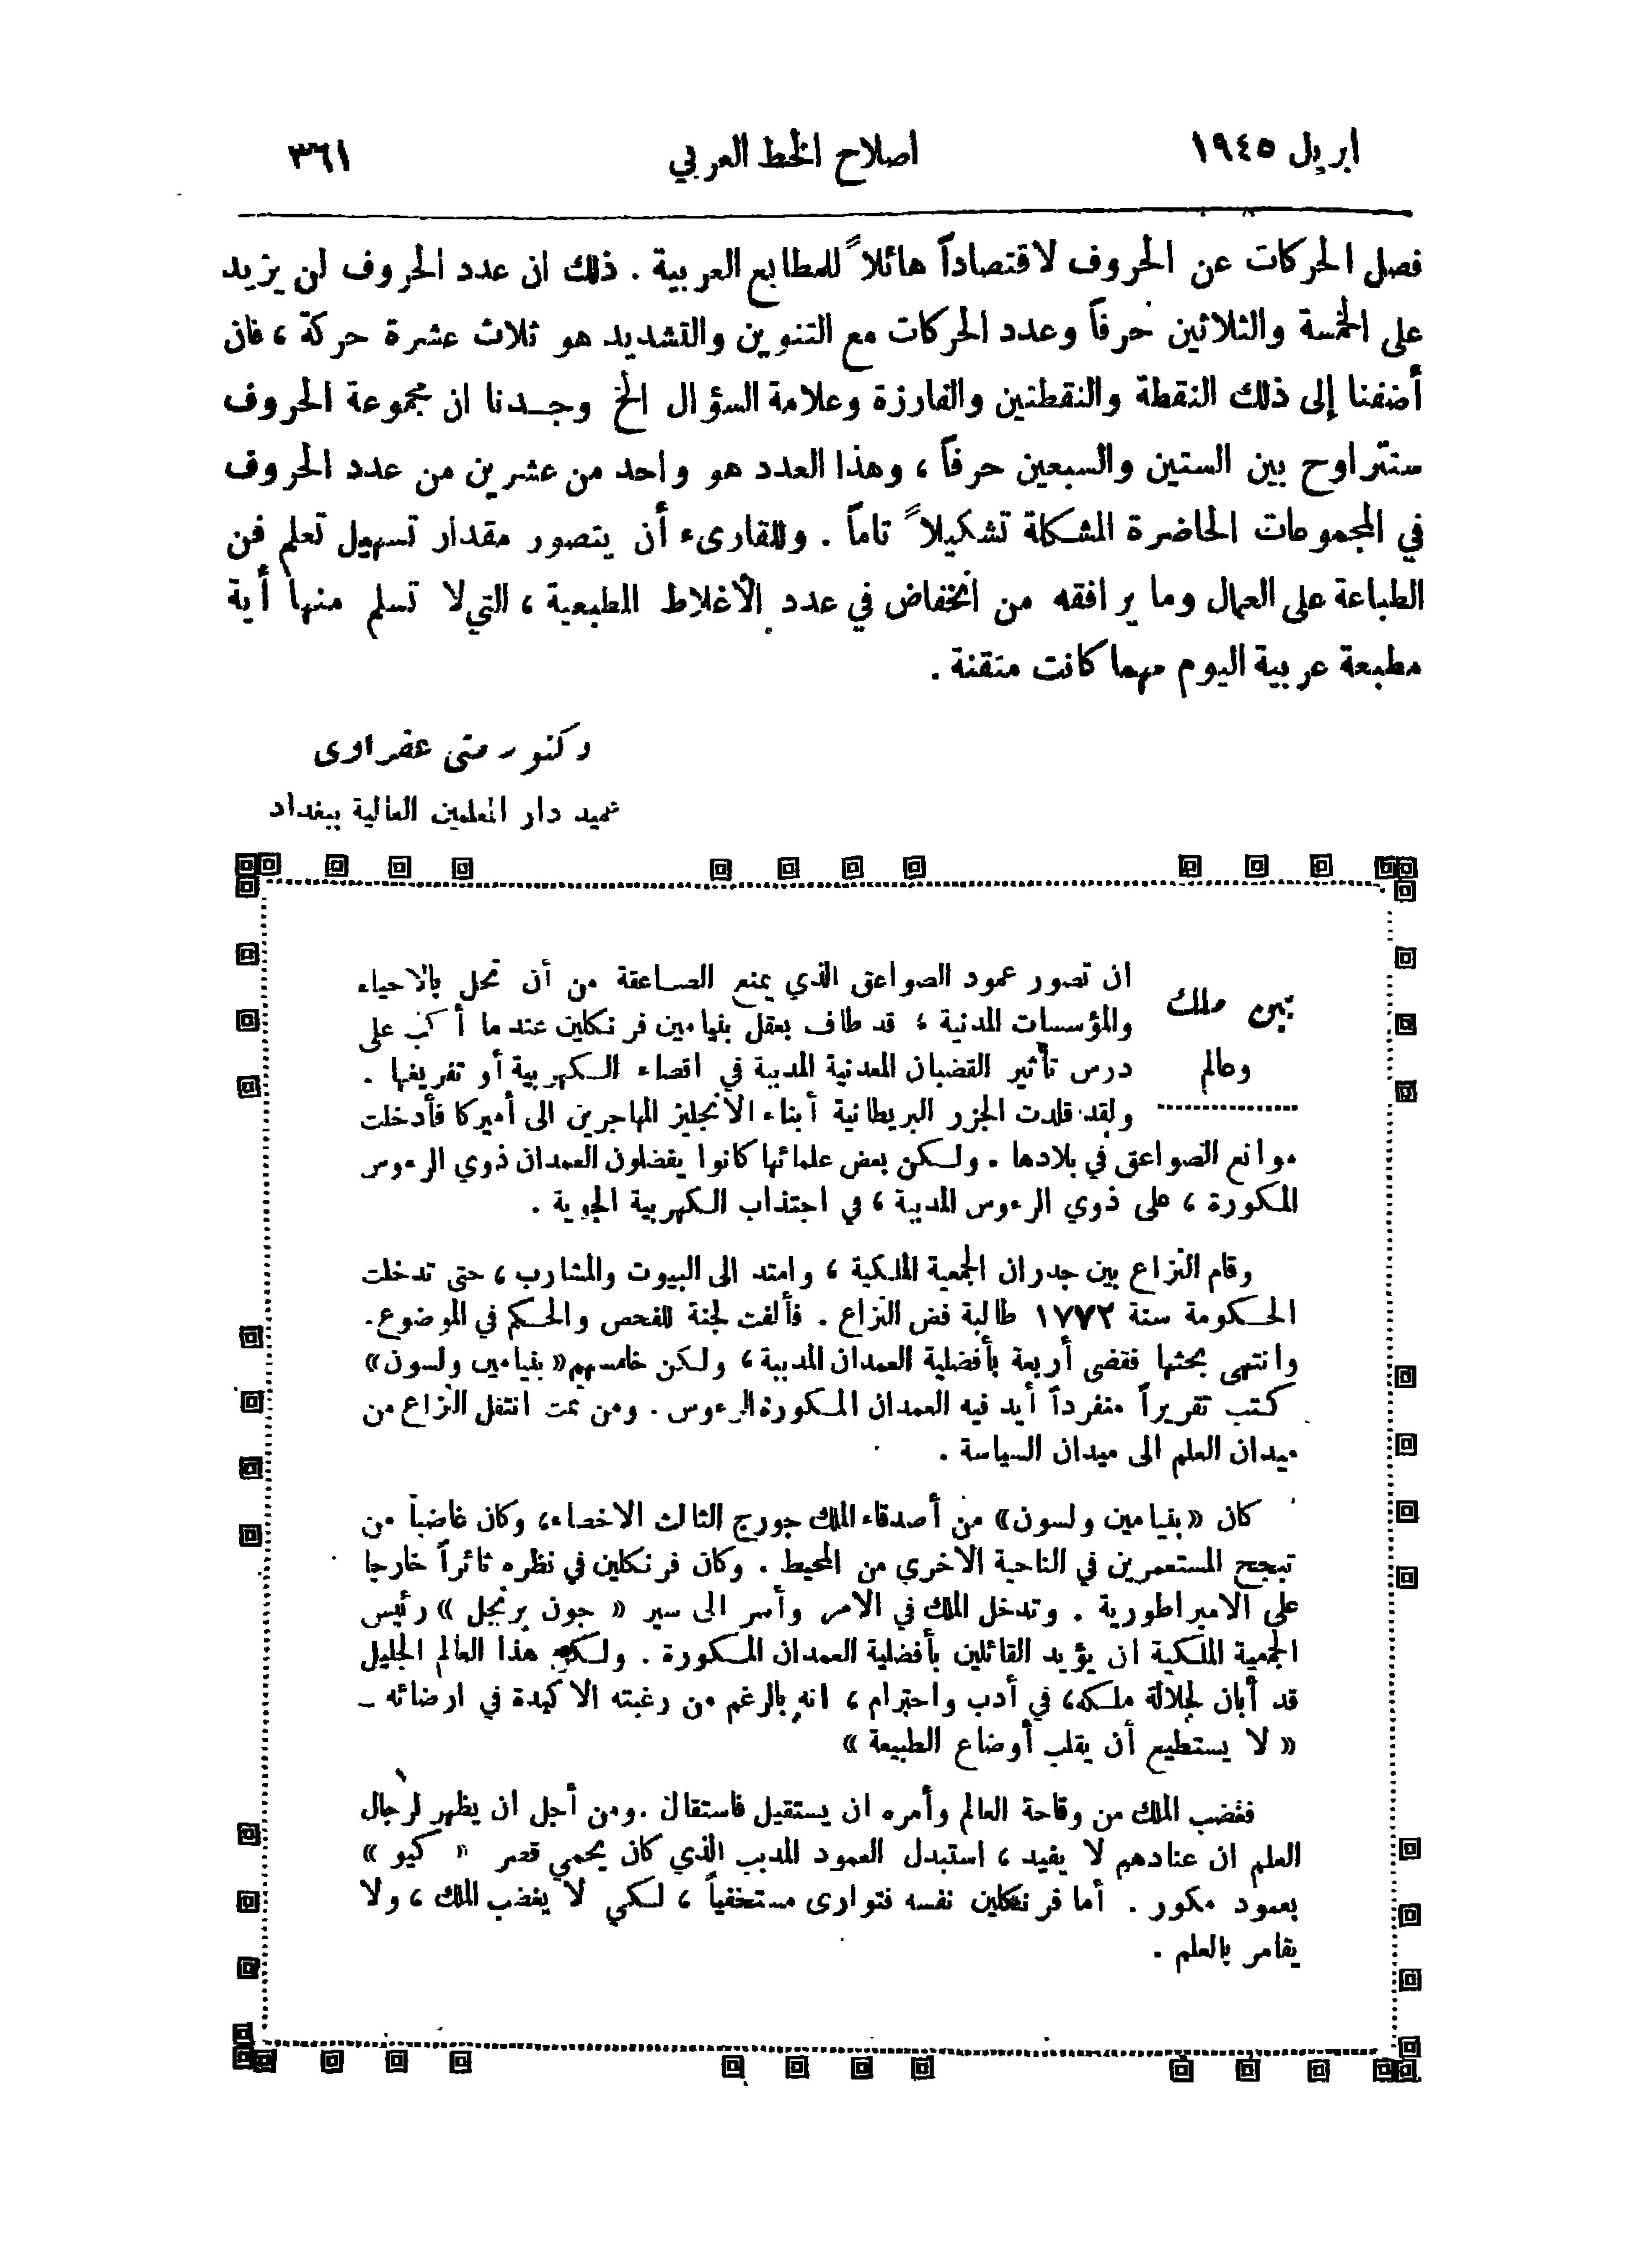 ابريل ١٩٤٥ اصلاح الخط العربي ٣٦١
فصل الحركات عن الحروف لاقتصاداً هائلاً للمطابع العربية . ذلك ان عدد الحروف لن يزيد
على الخمسة والثلاثين حرفاً وعدد الحركات مع التنوين والتشديد هو ثلاث عشرة حركة ، فان
أضفنا إلى ذلك النقطة والنقطتين والفارزة وعلامة السؤال الخ وجدنا ان مجموعة الحروف
ستتراوح بين الستين والسبعين حرفاً ، وهذا العدد هو واحد من عشرين من عدد الحروف
في المجموعات الحاضرة المشكلة تشكيلاً تاماً . وللقارىء أن يتصور مقدار تسهيل تعلم فن
الطباعة على العمال وما يرافقه من انخفاض في عدد الأغلاط المطبعية ، التي لا تسلم منها أية
مطبعة عربية اليوم مهما كانت متقنة .
دكتور متى عقراوى
عميد دار المعلمين العالية ببغداد
بين ملك
وعالم
ان تصور عمود الصواعق الذي يمنع الصاعقة من أن تحل بالاحياء
والمؤسسات المدنية ، قد طاف بعقل بنيامين فرنكلين عند ما أكب على
درس تأثير القضبان المعدنية المدببة في اقصاء الكهربية أو تفريغها .
ولقد قلدت الجزر البريطانية أبناء الانجليز المهاجرين الى أميركا فأدخلت
موانع الصواعق في بلادها . ولكن بعض علمائها كانوا يفضلون العمدان ذوي الرءوس
المكورة ، على ذوي الرءوس المدببة ، في اجتذاب الكهربية الجوية .
وقام النزاع بين جدران الجمعية الملكية ، وامتد الى البيوت والمشارب ، حتى تدخلت
الحكومة سنة ١٧٧٢ طالبة فض النزاع . فألفت لجنة للفحص والحكم في الموضوع.
وانتهى بحثها فقضى أربعة بأفضلية العمدان المدببة ، ولكن خامسهم «بنيامين ولسون»
كتب تقريراً منفرداً أيد فيه العمدان المكورة الرءوس . ومن ثمت انتقل النزاع من
ميدان العلم الى ميدان السياسة .
كان «بنيامين ولسون» من أصدقاء الملك جورج الثالث الاخصاء ، وكان غاضباً من
تبجح المستعمرين في الناحية الاخري من المحيط . وكان فرنكلين في نظره ثائراً خارجا
على الامبراطورية . وتدخل الملك في الامر وأسر الى سير « جون برنجل » رئيس
الجمعية الملكية ان يؤيد القائلين بأفضلية العمدان المكورة . ولكن هذا العالم الجليل
قد أبان لجلالة ملكه، في أدب واحترام ، انه بالرغم من رغبته الاكيدة في ارضائه ــ
« لا يستطيع أن يقلب أوضاع الطبيعة »
فغضب الملك من وقاحة العالم وأمره ان يستقيل فاستقال . ومن أجل ان يظهر لرجال
العلم ان عنادهم لا يفيد ، استبدل العمود المدبب الذي كان يحمي قصر « كيو »
بعمود مكور . أما فرنكلين نفسه فتوارى مستخفياً ، لكي لا يغضب الملك ، ولا
يقامر بالعلم .